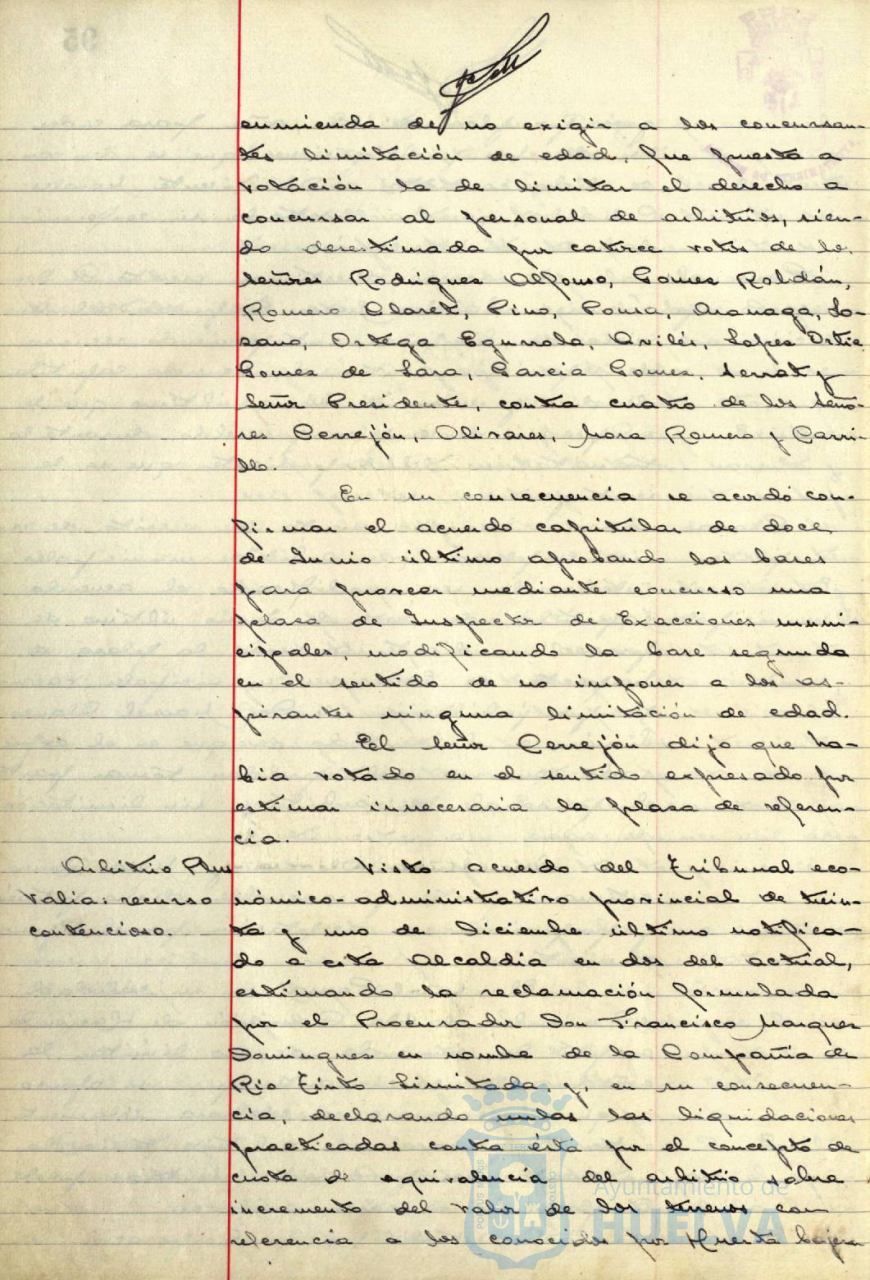 enmienda de no exigir a los concursan-
tes limitación de edad, fue puesta a
votación la de limitar el derecho a
concursar al personal de arbitrios, sien-
do desestimada por catorce votos de los
Señores Rodrigues Alfonso, Gomes Roldán,
Romero Claret, Pino, Ponsa, Aranaga, Lo-
sano, Ortega Egurrola, Avilés, Lopes Ortis
Gomes de Lara, Garcia Gomes, Serrat y
Señor Presidente, contra cuatro de los Seño-
res Cerrejón, Olivares, Mora Romero y Carri-
llo.
En su consecuencia se acordó con-
firmar el acuerdo capitular de doce
de Junio último aprobando las bases
para proveer mediante concurso una
plasa de Inspector de Exacciones muni-
cipales, modificando la base segunda
en el sentido de no imponer a los as-
pirantes ninguna limitación de edad.
El Señor Cerrejón dijo que ha-
bia votado en el sentido expresado por
estimar innecesaria la plasa de referen-
cia.
Arbitrio Plus
Valia: recurso
contencioso.
Visto acuerdo del Tribunal eco-
nómico-administrativo provincial de trein-
ta y uno de Diciembre último notifica-
do a esta Alcaldia en dos del actual,
estimando la reclamación formulada
por el Procurador Don Francisco Marques
Domingues en nombre de la Compañia de
Rio Tinto Limitada, y, en su consecuen-
cia, declarando nulas las liquidaciones
practicadas contra ésta por el concepto de
cuota de equivalencia del arbitrio sobre
incremento del valor de los terrenos con
referencia a los conocidos por Huerta
Ayuntamiento de
HUELVA